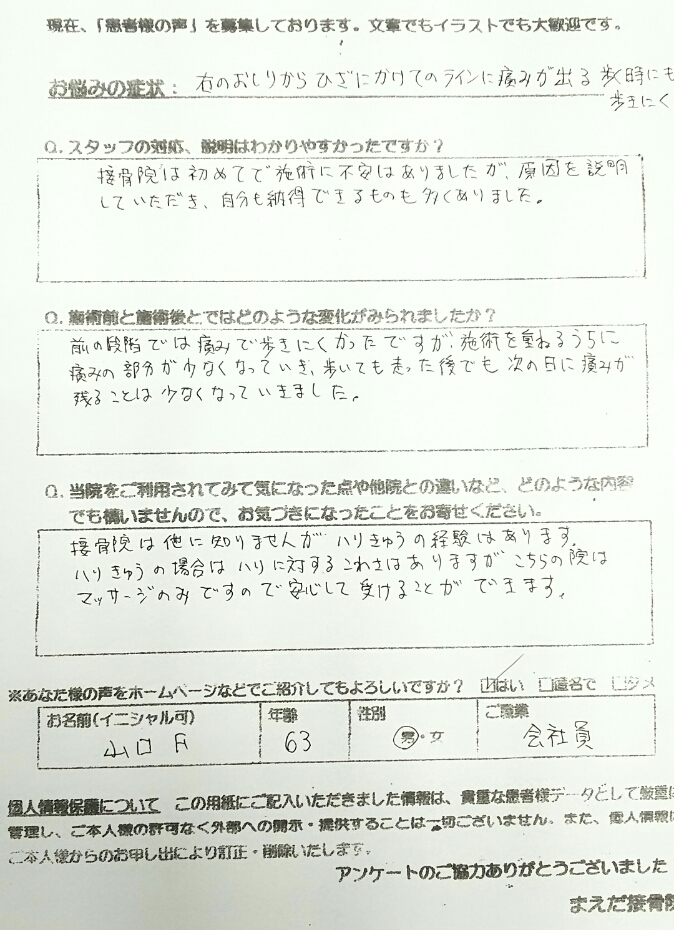 現在、「患者様の声」を募集しております。文章でもイラストでも大歓迎です。
お悩みの症状： 右のおしりからひざにかけてのラインに痛みが出る 歩く時にも
歩きにく
Q. スタッフの対応、説明はわかりやすかったですか？
接骨院は初めてで施術に不安はありましたが、原因を説明
していただき、自分も納得できるものも多くありました。
Q. 施術前と施術後とではどのような変化がみられましたか？
前の段階では痛みで歩きにくかったですが、施術を重ねるうちに
痛みの部分が少なくなっていき、歩いても走った後でも次の日に痛みが
残ることは少なくなっていきました。
Q. 当院をご利用されてみて気になった点や他院との違いなど、どのような内容
でも構いませんので、お気づきになったことをお寄せください。
接骨院は他に知りませんがハリきゅうの経験はあります。
ハリきゅうの場合はハリに対するこわさはありますがこちらの院は
マッサージのみですので安心して受けることができます。
※あなた様の声をホームページなどでご紹介してもよろしいですか？ ☑はい □匿名で □ダメ
お名前(イニシャル可) 年齢 性別 ご職業
山口 63 男・女 会社員
個人情報保護について この用紙にご記入いただきました情報は、貴重な患者様データとして厳重に
管理し、ご本人様の許可なく外部への開示・提供することは一切ございません。また、個人情報は
ご本人様からのお申し出により訂正・削除いたします。
アンケートのご協力ありがとうございました
まえだ接骨院